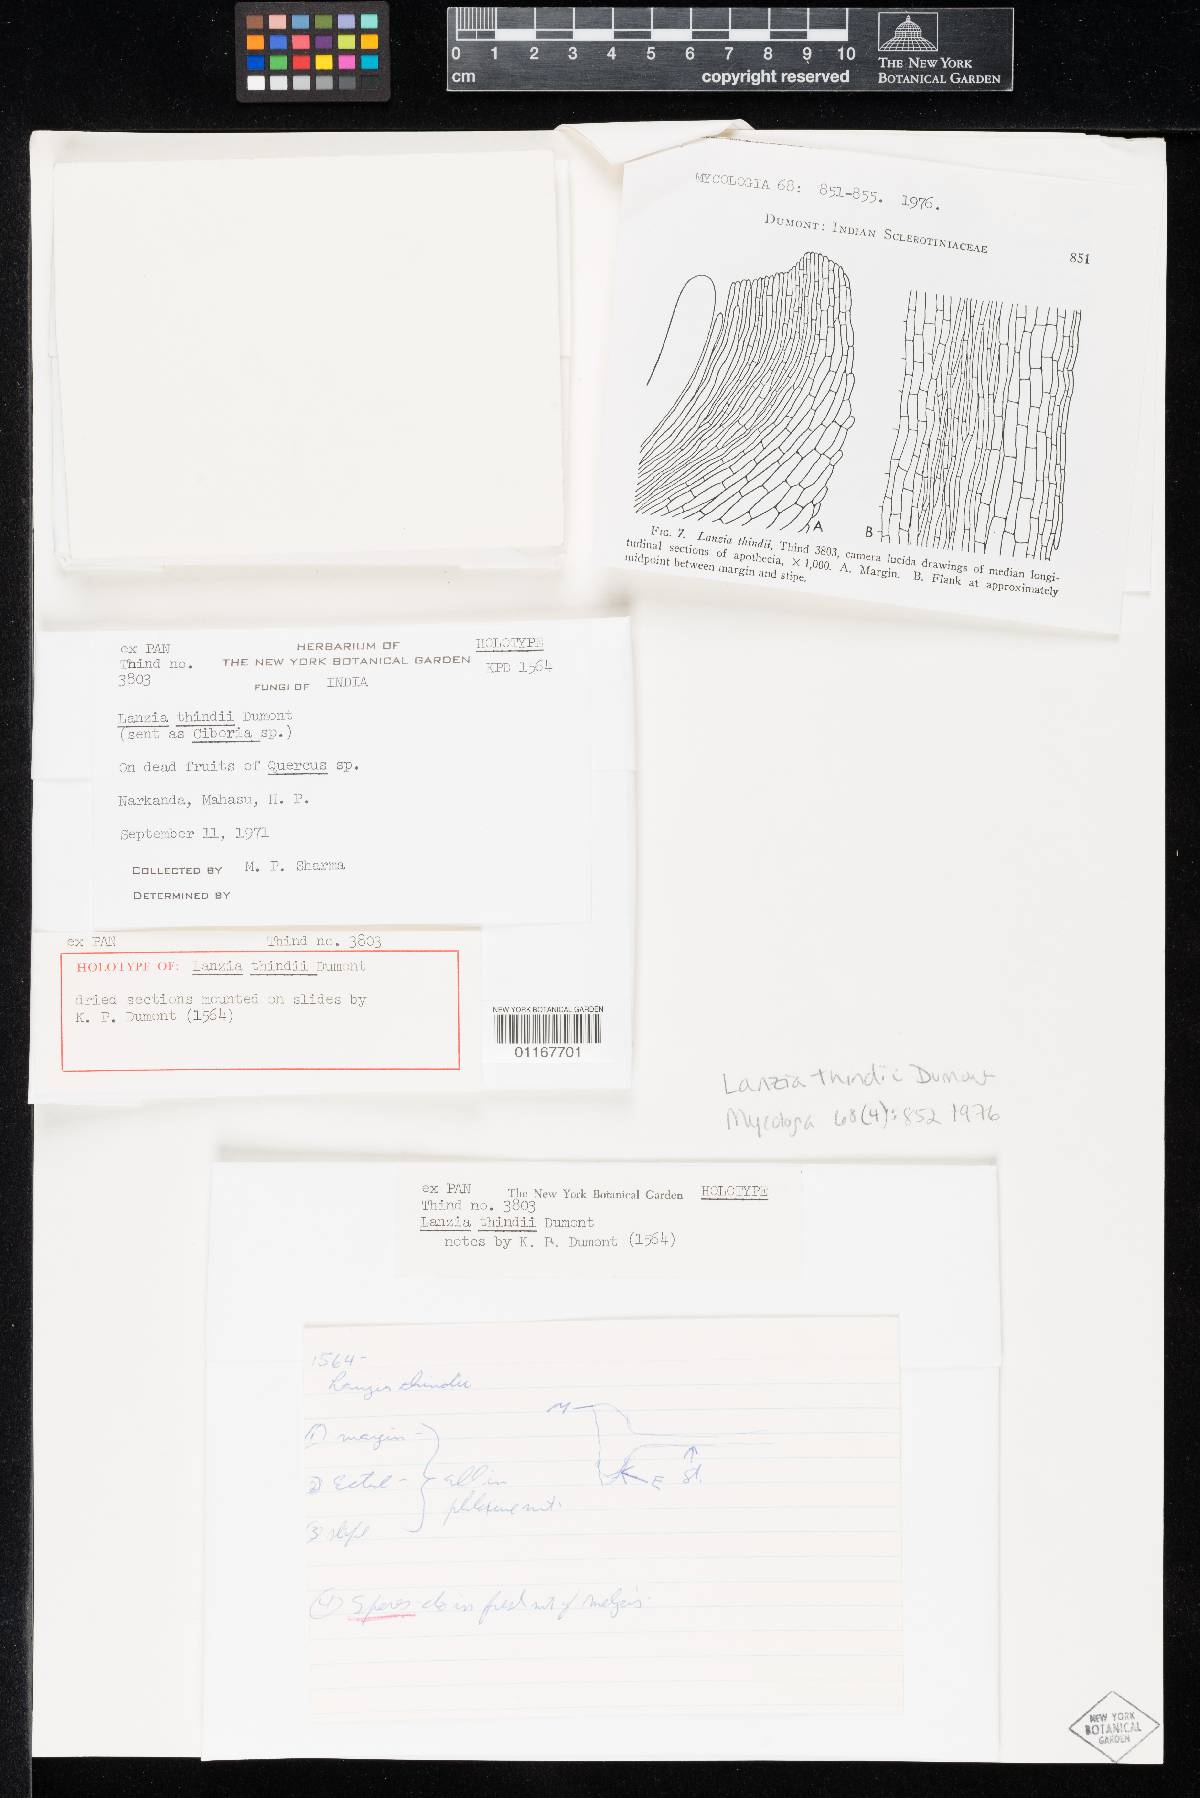 0 1 2 3 4 5 6 7 8 9 10
cm
copyright reserved
THE NEW YORK
BOTANICAL GARDEN
MYCOLOGIA 68: 851-855. 1976.
DUMONT: INDIAN SCLEROTINIACEAE
851
A
B
FIG. 7. Lanzia thindii, Thind 3803, camera lucida drawings of median longi-
tudinal sections of apothecia, × 1,000. A. Margin. B. Flank at approximately
midpoint between margin and stipe.
ex PAN
Thind no.
3803
HERBARIUM OF
THE NEW YORK BOTANICAL GARDEN
FUNGI OF INDIA
HOLOTYPE
KPD 1564
Lanzia thindii Dumont
(sent as Ciboria sp.)
On dead fruits of Quercus sp.
Narkanda, Mahasu, H. P.
September 11, 1971
COLLECTED BY M. P. Sharma
DETERMINED BY
ex PAN Thind no. 3803
HOLOTYPE OF: Lanzia thindii Dumont
dried sections mounted on slides by
K. P. Dumont (1564)
NEW YORK BOTANICAL GARDEN
01167701
Lanzia thindii Dumont
Mycologia 68(4):852 1976
ex PAN The New York Botanical Garden HOLOTYPE
Thind no. 3803
Lanzia thindii Dumont
notes by K. P. Dumont (1564)
1564-
Lanzia thindii
M
(1) margin -
(2) Ectal - all in
E St.
(3) stipe
(4) Spores - do in fresh mt of Melzers.
NEW YORK
BOTANICAL
GARDEN